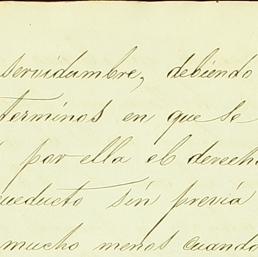 servidumbre, debiendo
terminos en que se
por ella el derecho
ueducto sin previa
mucho menos cuando